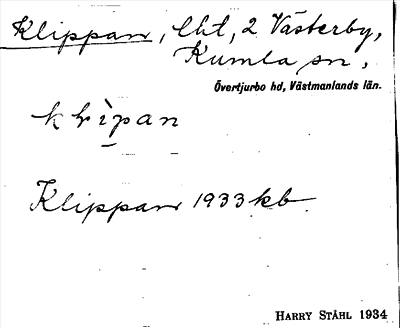 Klippan, lht, 2 Västerby,
Kumla sn,
Övertjurbo hd, Västmanlands län.
klìpan
Klippan 1933 kb
HARRY STÅHL 1934